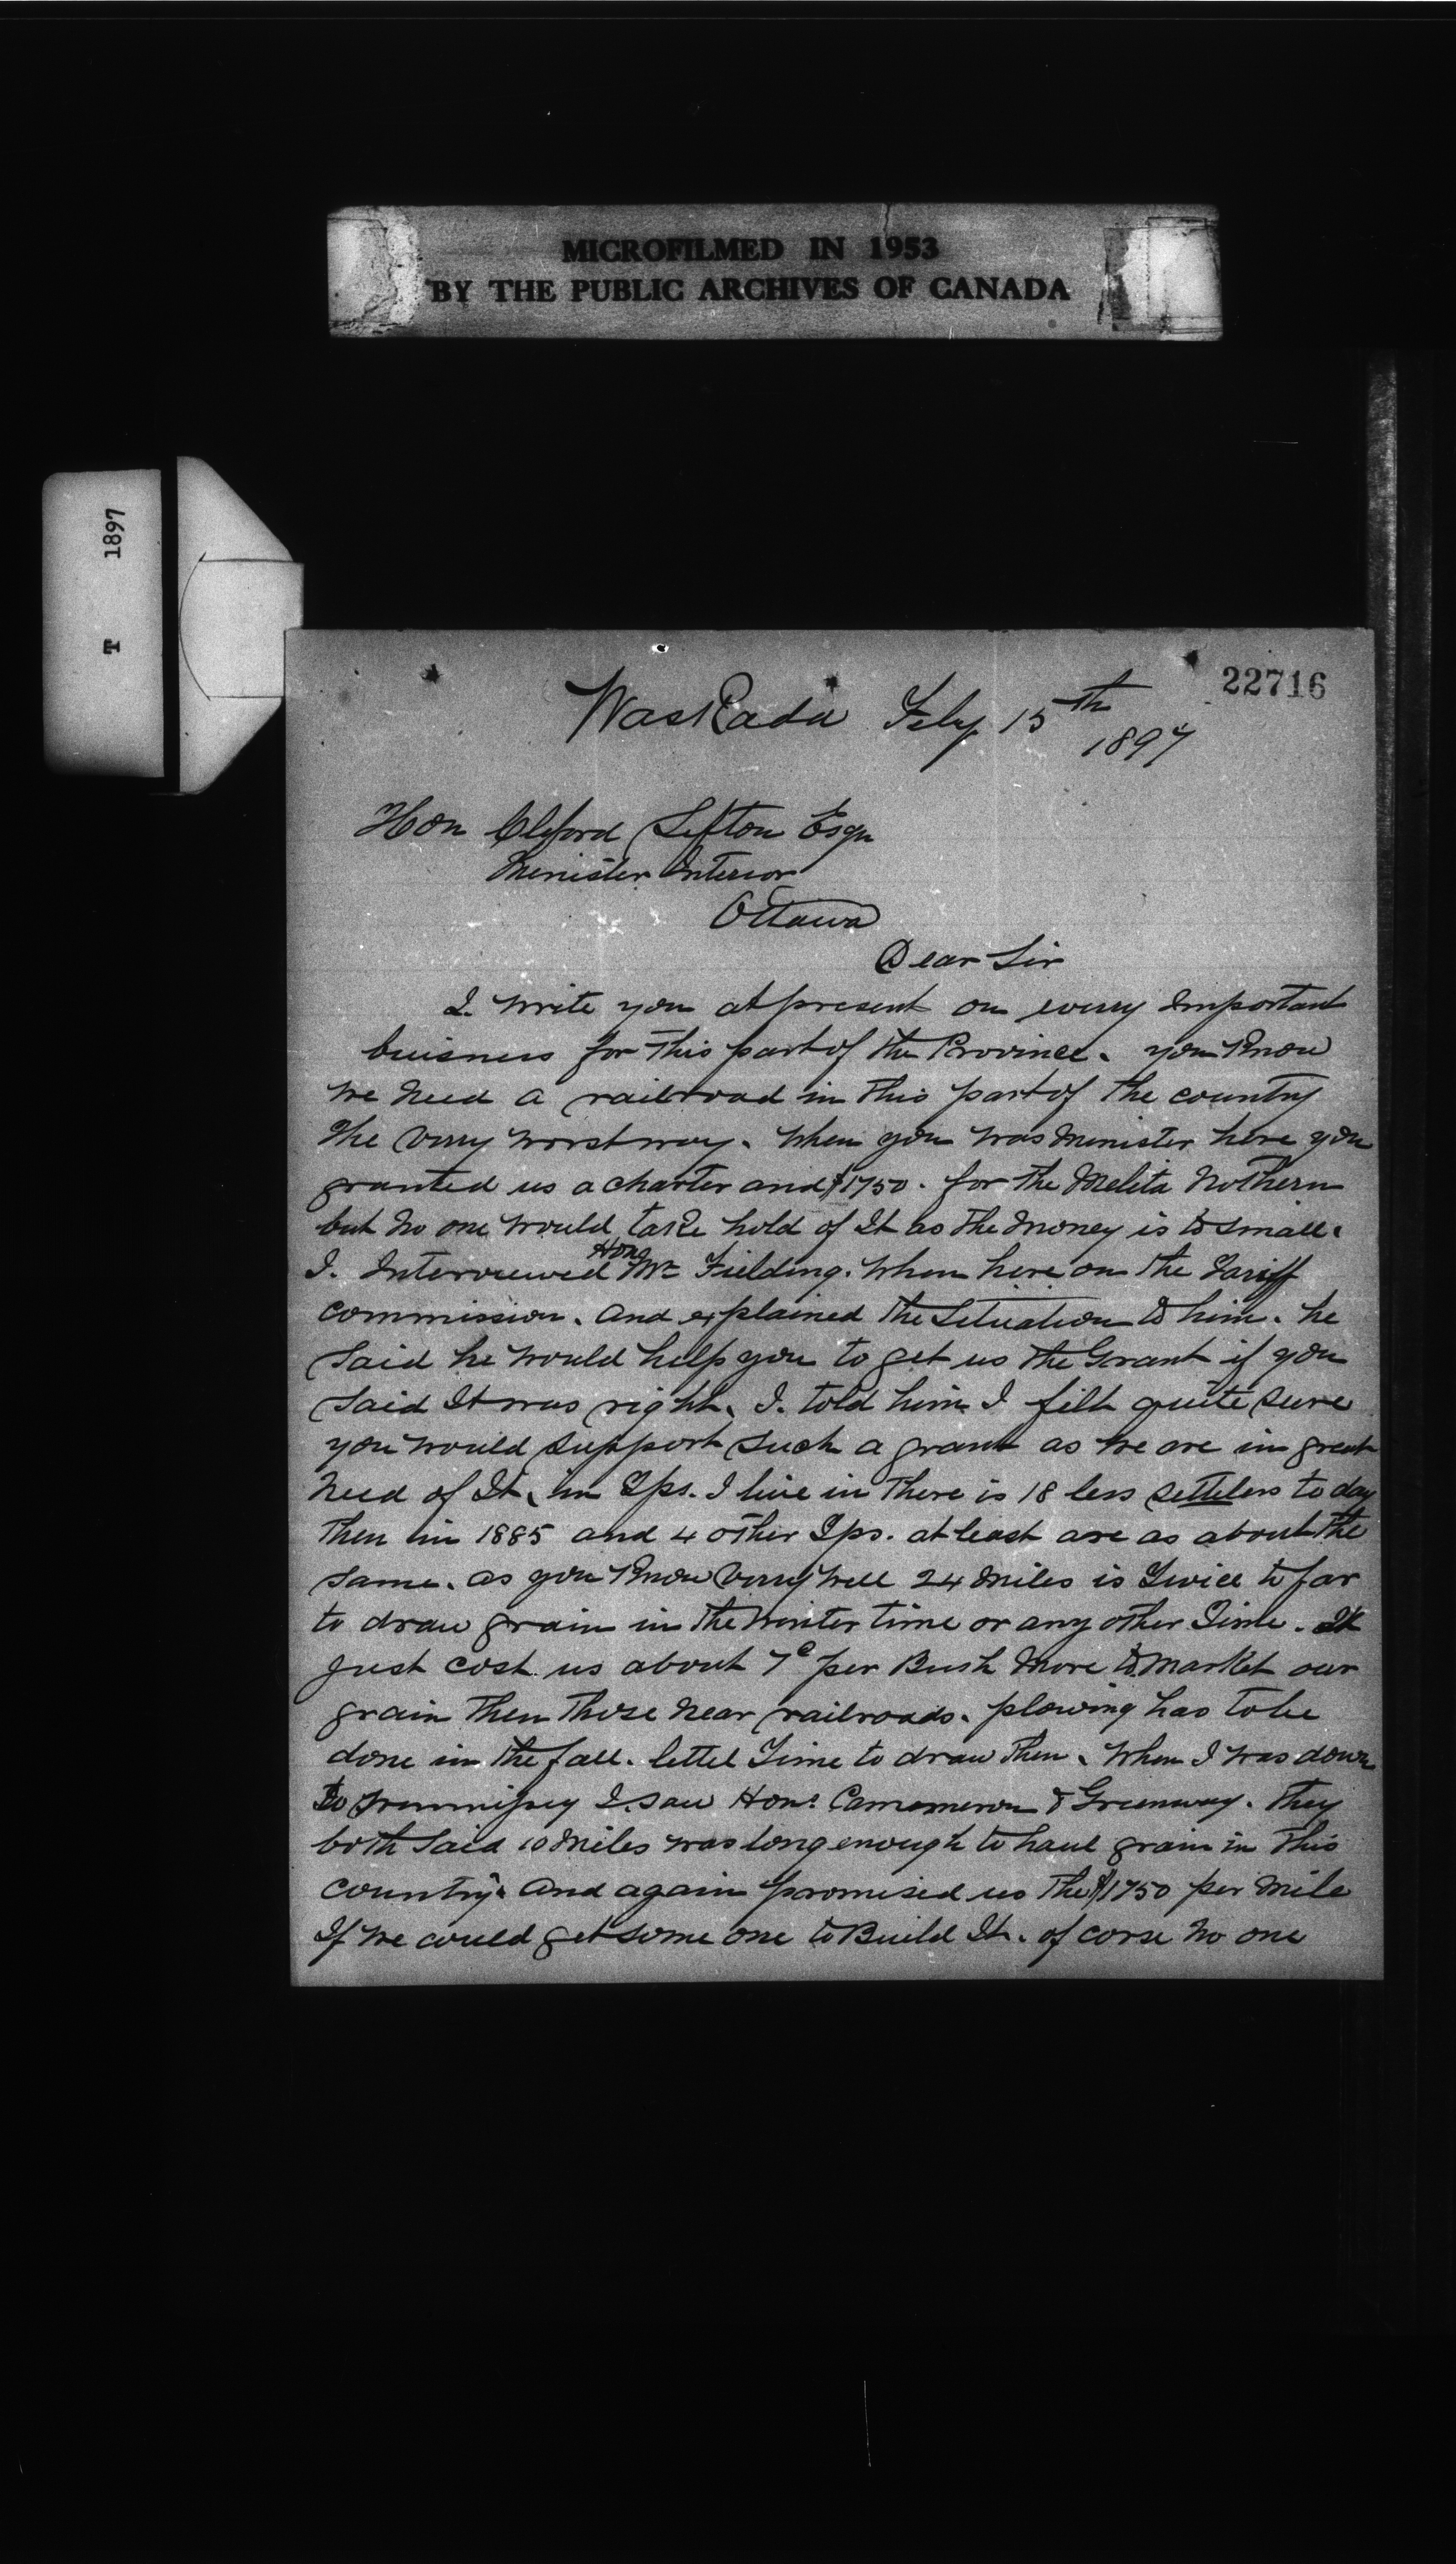 MICROFILMED IN 1953
BY THE PUBLIC ARCHIVES OF CANADA
T 1897
22716
Waskada Feby 15th
1897
Hon Cliford Sifton Esqr
Minister Interior
Ottawa
Dear Sir
I. write you at present on every Important
buisness for this part of the Province. you know
we need a railroad in this part of the country
the very worst way. When you was Minister here you
granted us a charter and $1750. for the Melita Nothern
but no one would take hold of It as the money is to small.
I. Interviewed Hon Mr Fielding. When here on the Tariff
commission. and explained the Situation to him. he
said he would help you to get us the Grant if you
said It was right. I. told him I felt quite sure
you would support such a grant as we are in great
need of It. in Tps. I live in there is 18 less settelers to day
then in 1885 and 4 other Tps. at least are as about the
same. as you know very well 24 miles is Twice to far
to draw grain in the winter time or any other Time. It
Just cost us about 7c per Bush more to market our
grain then those near railroads. plowing has to be
done in the fall. littel Time to draw then. When I was down
to Winnipeg I. saw Hons. Camomeron & Greenway. they
both said 10 miles was long enough to haul grain in this
country. and again promised us the $1750 per mile
If we could get some one to Build It. of corse no one